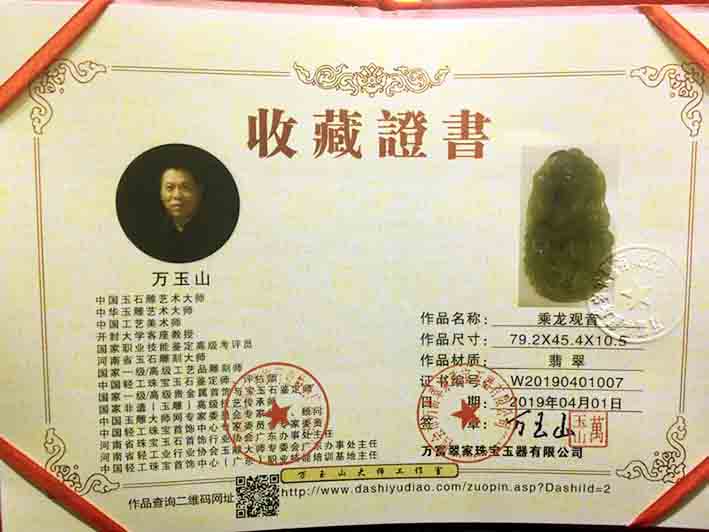 收藏證書
万玉山
中国玉石雕艺术大师
中华玉雕艺术大师
中国工艺美术师
开封大学客座教授
国家职业技能鉴定高级考评员
河南省玉石雕刻大师
国家一级/高级工艺品雕刻师
中国轻工珠宝玉石鉴定师、评估师
国家一级/高级贵金属首饰与宝玉石鉴定师
国家非遗(玉雕)高级技艺传承师
中国玉雕大师网专家委员会专家 顾问
中国轻工珠宝首饰中心专家委员 专家委员
河南省珠宝玉石首饰行业协会广东办事处主任
中国轻工业行业协会玉雕大师专委会广东办事处主任
中国轻工珠宝首饰中心(广东)职业技能培训基地主任
作品名称: 乘龙观音
作品尺寸: 79.2X45.4X10.5
作品材质: 翡翠
证书编号: W20190401007
日 期: 2019年04月01日
签 章: 万玉山
萬玉山
万富翠家珠宝玉器有限公司
万玉山大师工作室
作品查询二维码网址
http://www.dashiyudiao.com/zuopin.asp?DashiId=2